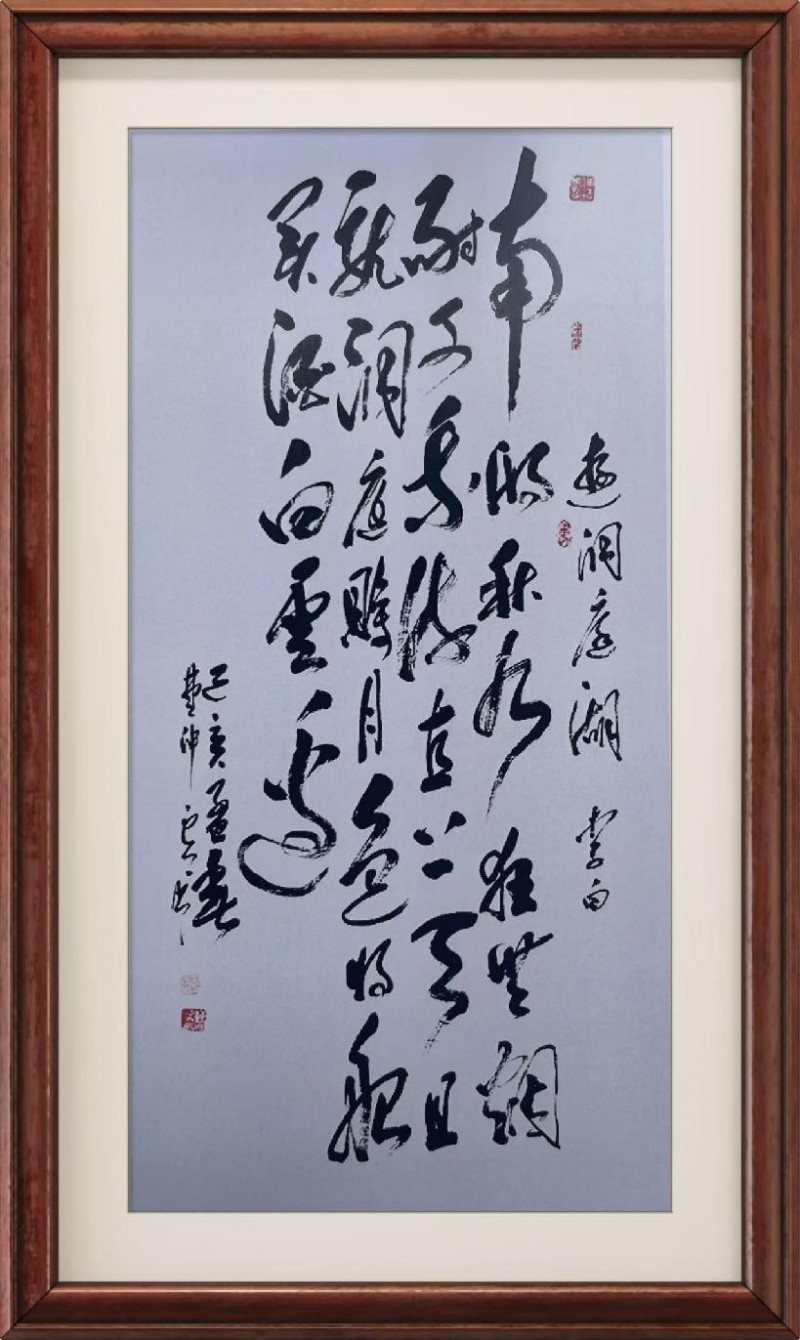 遊洞庭湖 李白
南湖秋水夜無烟
耐可乘流直上天且
就洞庭賒月色將船
買酒白雲邊
己亥孟春